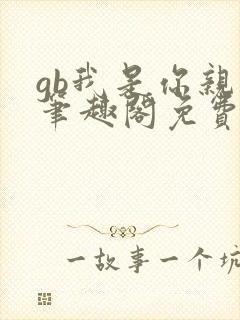 gb我是你親
筆趣閣免費
一故事一个坑